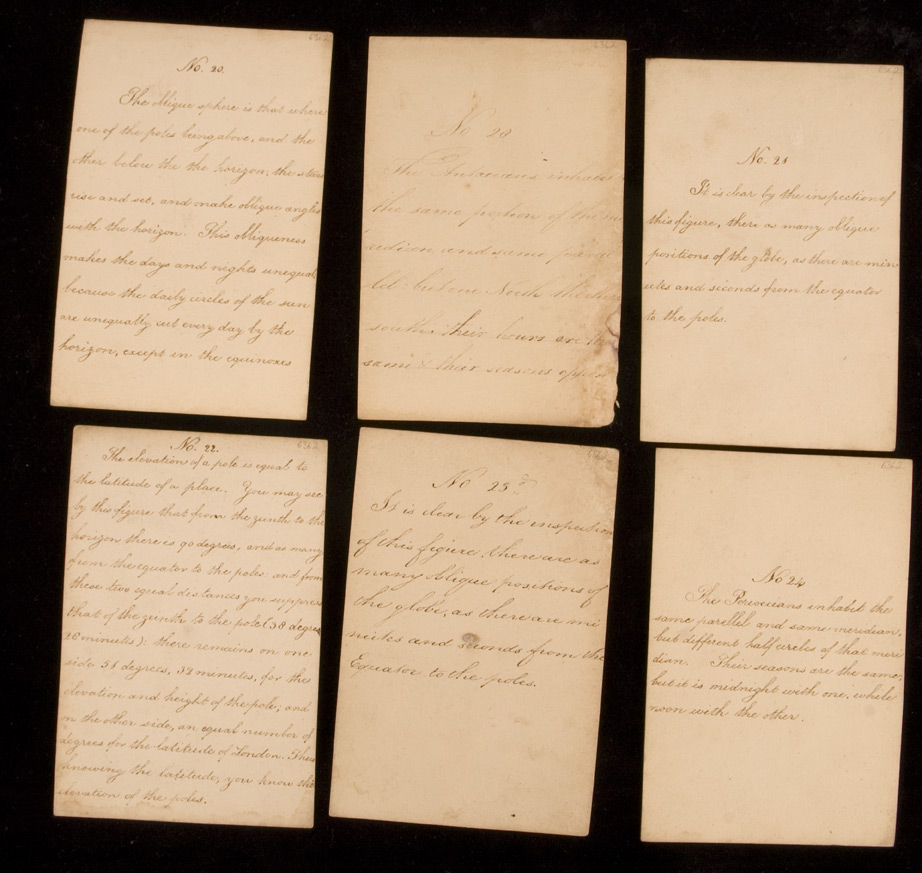 6362
No. 20.
The oblique sphere is that where
one of the poles being above, and the
other below the the horizon; the stars
rise and set, and make oblique angles
with the horizon. This obliqueness
makes the days and nights unequal
because the daily circles of the sun
are unequally cut every day by the
horizon, except in the equinoxes
6362
No 28
The Antoecians inhabit
the same portion of the me
redian and same
but one North the other
south. their hours are the
same & thier seasons
6362
No. 21
It is clear by the inspection of
this figure, there as many oblique
positions of the globe, as there are min
utes and seconds from the equator
to the poles.
6362
No. 22.
The elevation of a pole is equal to
the latitude of a place. You may see
by this figure that from the zenith to the
horizon there is 90 degrees, and as many
from the equator to the poles: and from
these two equal distances you suppress
that of the zenith to the pole (38 degrees
26 minutes): there remains on one
side 51 degrees, 32 minutes, for the
elevation and height of the pole; and
on the other side, an equal number of
degrees for the latitude of London. Thus
knowing the latitude, you know the
elevation of the poles.
No 23
It is clear by the inspection
of this figure, there are as
many oblique positions of
the globe, as there are mi
nutes and seconds from the
Equator to the poles.
6362
No 24
The Perioecians inhabit the
same parellel and same meridian,
but different half circles of that meri
dian. Their seasons are the same,
but it is midnight with one, while
noon with the other.